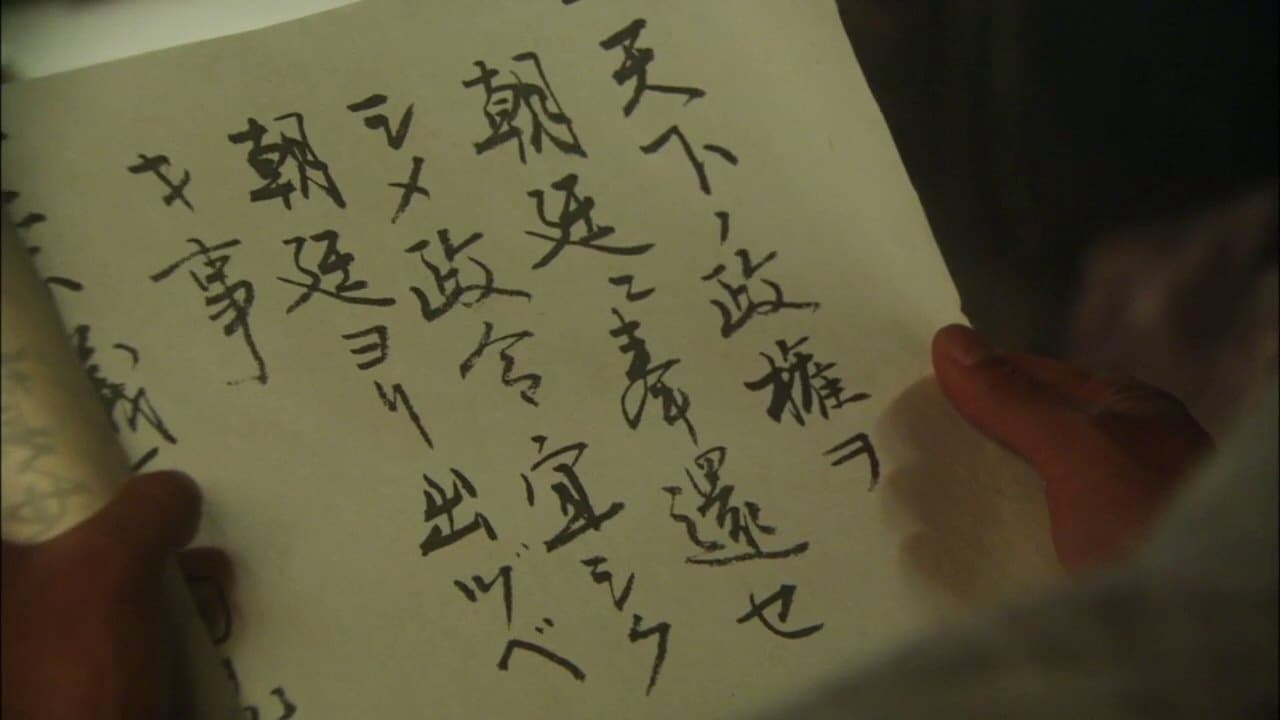 天下ノ政権ヲ
朝廷ニ奉還セ
シメ政令宜シク
朝廷ヨリ出ヅベ
キ事
義